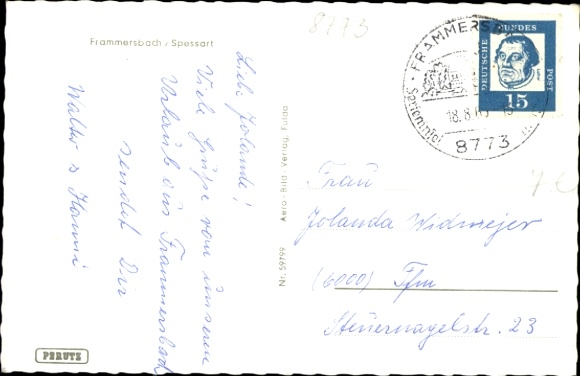 8773
Frammersbach / Spessart
Liebe Jolande!
Viele Grüße von unserem
Urlaub aus Frammersbach
sendet Dir
Walter & Hanni
PERUTZ
Nr. 59799 Aero-Bild-Verlag, Fulda
FRAMMERSB
18.8.6
8773
DEUTSCHE BUNDES POST
15
7 €
Frau
Jolanda Widmejer
(6000) Ffm
Steuernagelstr. 23